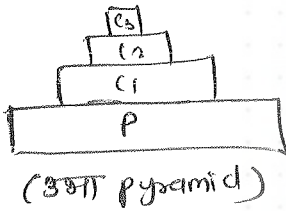 C3
C2
C1
P
(उभा pyramid)